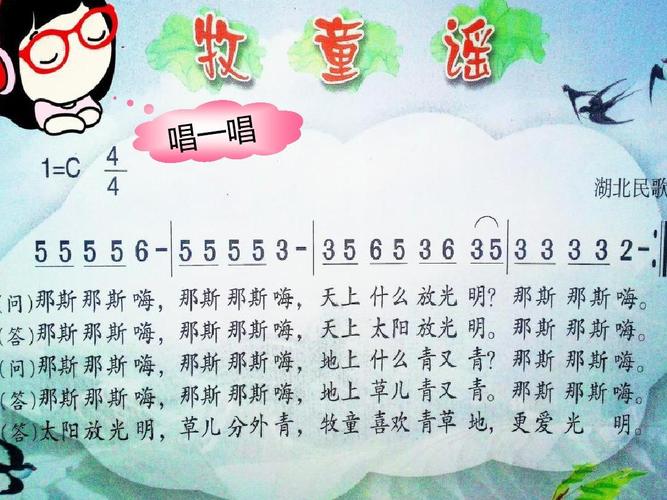 牧童谣
唱一唱
1=C 4/4
湖北民歌
5 5 5 5 6 - | 5 5 5 5 3 - | 3 5 6 5 3 6 3 5 | 3 3 3 3 2 - :|
(问)那斯那斯嗨，那斯那斯嗨，天上什么放光明？那斯那斯嗨。
(答)那斯那斯嗨，那斯那斯嗨，天上太阳放光明。那斯那斯嗨。
(问)那斯那斯嗨，那斯那斯嗨，地上什么青又青？那斯那斯嗨。
(答)那斯那斯嗨，那斯那斯嗨，地上草儿青又青。那斯那斯嗨。
(答)太阳放光明，草儿分外青，牧童喜欢青草地，更爱光明。